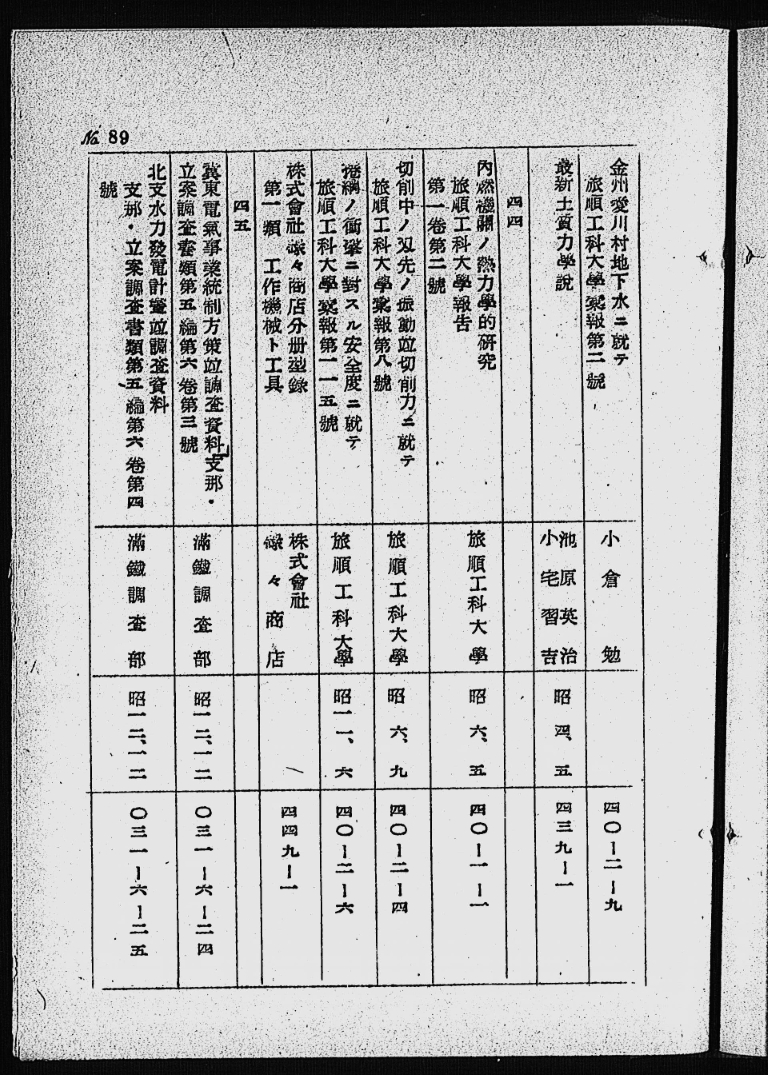 No 89
金州愛川村地下水ニ就テ
旅順工科大學彙報第二號
小倉勉
四〇－二－九
最新土質力學說
池原英治
小宅習吉
昭四、五
四三九－一
四四
內燃機關ノ熱力學的硏究
旅順工科大學報告
第一卷第二號
旅順工科大學
昭六、五
四〇－一－一
切削中ノ刄先ノ振動竝切削力ニ就テ
旅順工科大學彙報第八號
旅順工科大學
昭六、九
四〇－二－四
捲綱ノ衝擊ニ對スル安全度ニ就テ
旅順工科大學彙報第一一五號
旅順工科大學
昭一一、六
四〇－二－六
株式會社碌々商店分册型錄
第一類　工作機械ト工具
株式會社
碌々商店
四四九－一
四五
冀東電氣事業統制方策竝調査資料」支那・
立案調査書類第五編第六卷第三號
滿鐵調査部
昭一二、一二
〇三一－六－二四
北支水力發電計畫竝調査資料
支那・立案調査書類第五編第六卷第四
號
滿鐵調査部
昭一二、一二
〇三一－六－二五